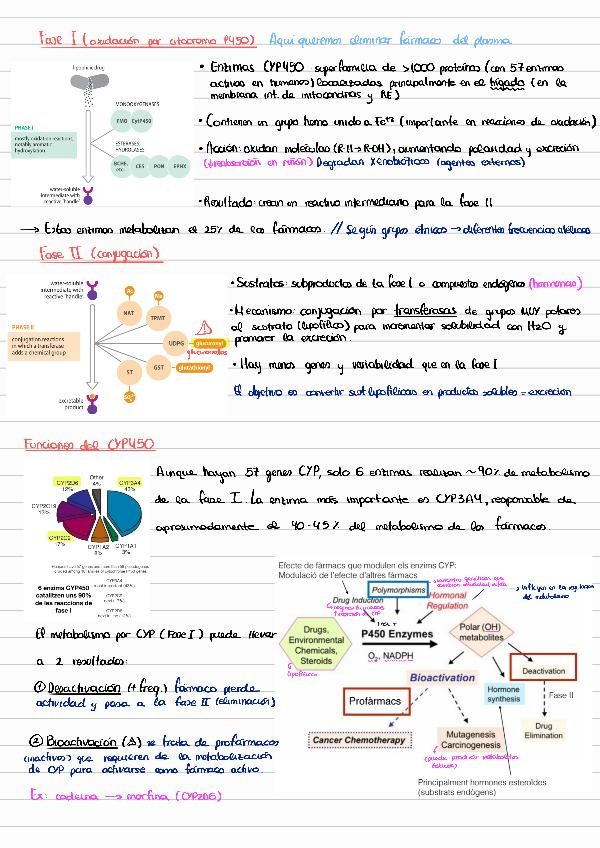 Fase I (oxidación por citocromo P450) Aquí queremos eliminar fármaco del plasma
lipophilic drug
MONOOXYGENASES
FMO CytP450
PHASE I
mostly oxidation reactions,
notably aromatic
hydroxylation
ESTERASES,
HYDROLASES
BCHE, etc. CES PON EPHX
water-soluble
intermediate with
reactive 'handle'
• Enzimas CYP450 superfamilia de >1000 proteínas (con 57 enzimas
activas en humanos) localizadas principalmente en el hígado (en la
membrana int. de mitocondrias y RE)
• Contienen un grupo hemo unido a Fe+2 (importante en reacciones de oxidación)
• Acción: oxidan moléculas (R-H → R-OH), aumentando polaridad y excreción
(↓reabsorción en riñón) Degradan xenobióticos (agentes externos)
• Resultado: crean un reactivo intermediario para la fase II
→ Estas enzimas metabolizan el 25% de los fármacos. // Según grupos étnicos → diferentes frecuencias alélicas
Fase II (conjugación)
water-soluble
intermediate with
reactive 'handle'
Ac
Me
NAT
TPMT
PHASE II
conjugation reactions
in which a transferase
adds a chemical group
UDPG glucuronyl
glucuronidos
ST GST glutathionyl
excretable
product
• Sustratos: subproductos de la fase I o compuestos endógenos (hormonas)
• Mecanismo: conjugación por transferasas de grupos MUY polares
al sustrato (lipofílico) para incrementar solubilidad con H2O y
promover la excreción.
• Hay menos genes y variabilidad que en la fase I
El objetivo es convertir sust lipofílicas en productos solubles = excreción
Funciones del CYP450
CYP2D6
12%
Other
4%
CYP3A4
43%
CYP2C19
13%
CYP2C9
17%
CYP1A2
8%
CYP1A1
3%
6 enzims CYP450
catalitzen uns 90%
de les reaccions de
fase I
Aunque hayan 57 genes CYP, solo 6 enzimas realizan ~90% de metabolismo
de la fase I. La enzima más importante es CYP3A4, responsable de
aproximadamente el 40-45% del metabolismo de los fármacos.
El metabolismo por CYP (Fase I) puede llevar
a 2 resultados:
① Desactivación (+ freq.) fármaco pierde
actividad y pasa a la fase II (eliminación)
② Bioactivación (⚠) se trata de profármacos
(inactivos) que requieren de la metabolización
de CYP para activarse como fármaco activo.
Ex: codeína → morfina (CYP2D6)
Efecte de fàrmacs que modulen els enzims CYP:
Modulació de l'efecte d'altres fàrmacs
Polymorphisms
Drug Induction
Hormonal
Regulation
Drugs,
Environmental
Chemicals,
Steroids
lipofílico
P450 Enzymes
O2, NADPH
Polar (OH)
metabolites
Bioactivation
Deactivation
Profàrmacs
Hormone
synthesis
Fase II
Cancer Chemotherapy
Mutagenesis
Carcinogenesis
Drug
Elimination
Principalment hormones esteroïdes
(substrats endògens)